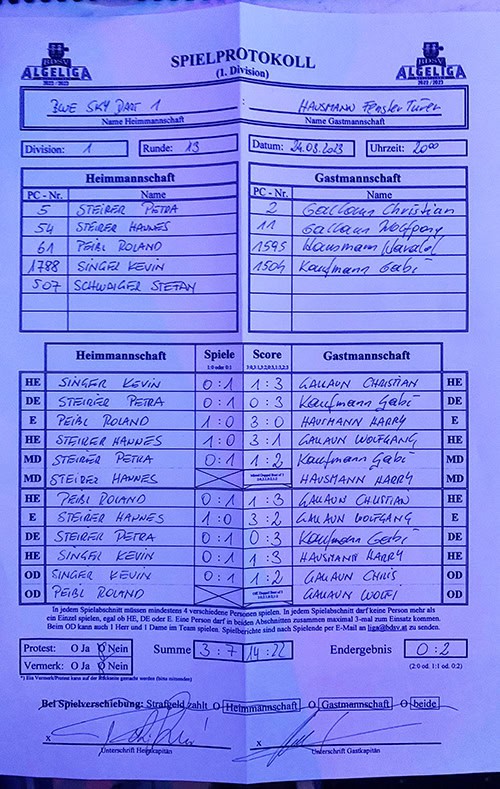 BDSV
ALGELIGA
2022/2023
SPIELPROTOKOLL
(1. Division)
BDSV
ALGELIGA
2022/2023
BLUE SKY DART 1 : HAUSMANN Fenster Türen
Name Heimmannschaft Name Gastmannschaft
Division: 1 Runde: 13 Datum: 24.03.2023 Uhrzeit: 20⁰⁰
Heimmannschaft Gastmannschaft
PC - Nr. Name PC - Nr. Name
5 STEIRER PETRA 2 Gallaun Christian
54 STEIRER HANNES 11 Gallaun Wolfgang
61 PEIBL ROLAND 1595 Hausmann
1788 SINGER KEVIN 1504 Kaufmann Gabi
507 SCHWAIGER STEFAN
Heimmannschaft Spiele Score Gastmannschaft
1:0 oder 0:1 3:0,3:1,3:2,0:3,1:3,2:3
HE SINGER KEVIN 0:1 1:3 GALLAUN CHRISTIAN HE
DE STEIRER PETRA 0:1 0:3 Kaufmann Gabi DE
E PEIBL ROLAND 1:0 3:0 HAUSMANN HARRY E
HE STEIRER HANNES 1:0 3:1 GALLAUN WOLFGANG HE
MD STEIRER PETRA 0:1 1:2 Kaufmann Gabi MD
MD STEIRER HANNES HAUSMANN HARRY MD
HE PEIBL ROLAND 0:1 1:3 GALLAUN CHRISTIAN HE
E STEIRER HANNES 1:0 3:2 GALLAUN WOLFGANG E
DE STEIRER PETRA 0:1 0:3 Kaufmann Gabi DE
HE SINGER KEVIN 0:1 1:3 HAUSMANN HARRY HE
OD SINGER KEVIN 0:1 1:2 GALLAUN CHRIS OD
OD PEIBL ROLAND GALLAUN WOLFI OD
In jedem Spielabschnitt müssen mindestens 4 verschiedene Personen spielen. In jedem Spielabschnitt darf keine Person mehr als
ein Einzel spielen, egal ob HE, DE oder E. Eine Person darf in beiden Abschnitten zusammen maximal 3-mal zum Einsatz kommen.
Beim OD kann auch 1 Herr und 1 Dame im Team spielen. Spielberichte sind nach Spielende per E-Mail an liga@bdsv.at zu senden.
Protest: O Ja O Nein Summe 3:7 14:22 Endergebnis 0:2
Vermerk: O Ja O Nein (2:0 od. 1:1 od. 0:2)
*) Ein Vermerk/Protest kann auf der Rückseite gemacht werden (bitte umwenden)
Bei Spielverschiebung: Strafgeld zahlt O Heimmannschaft O Gastmannschaft O beide
x x
Unterschrift Heimkapitän Unterschrift Gastkapitän